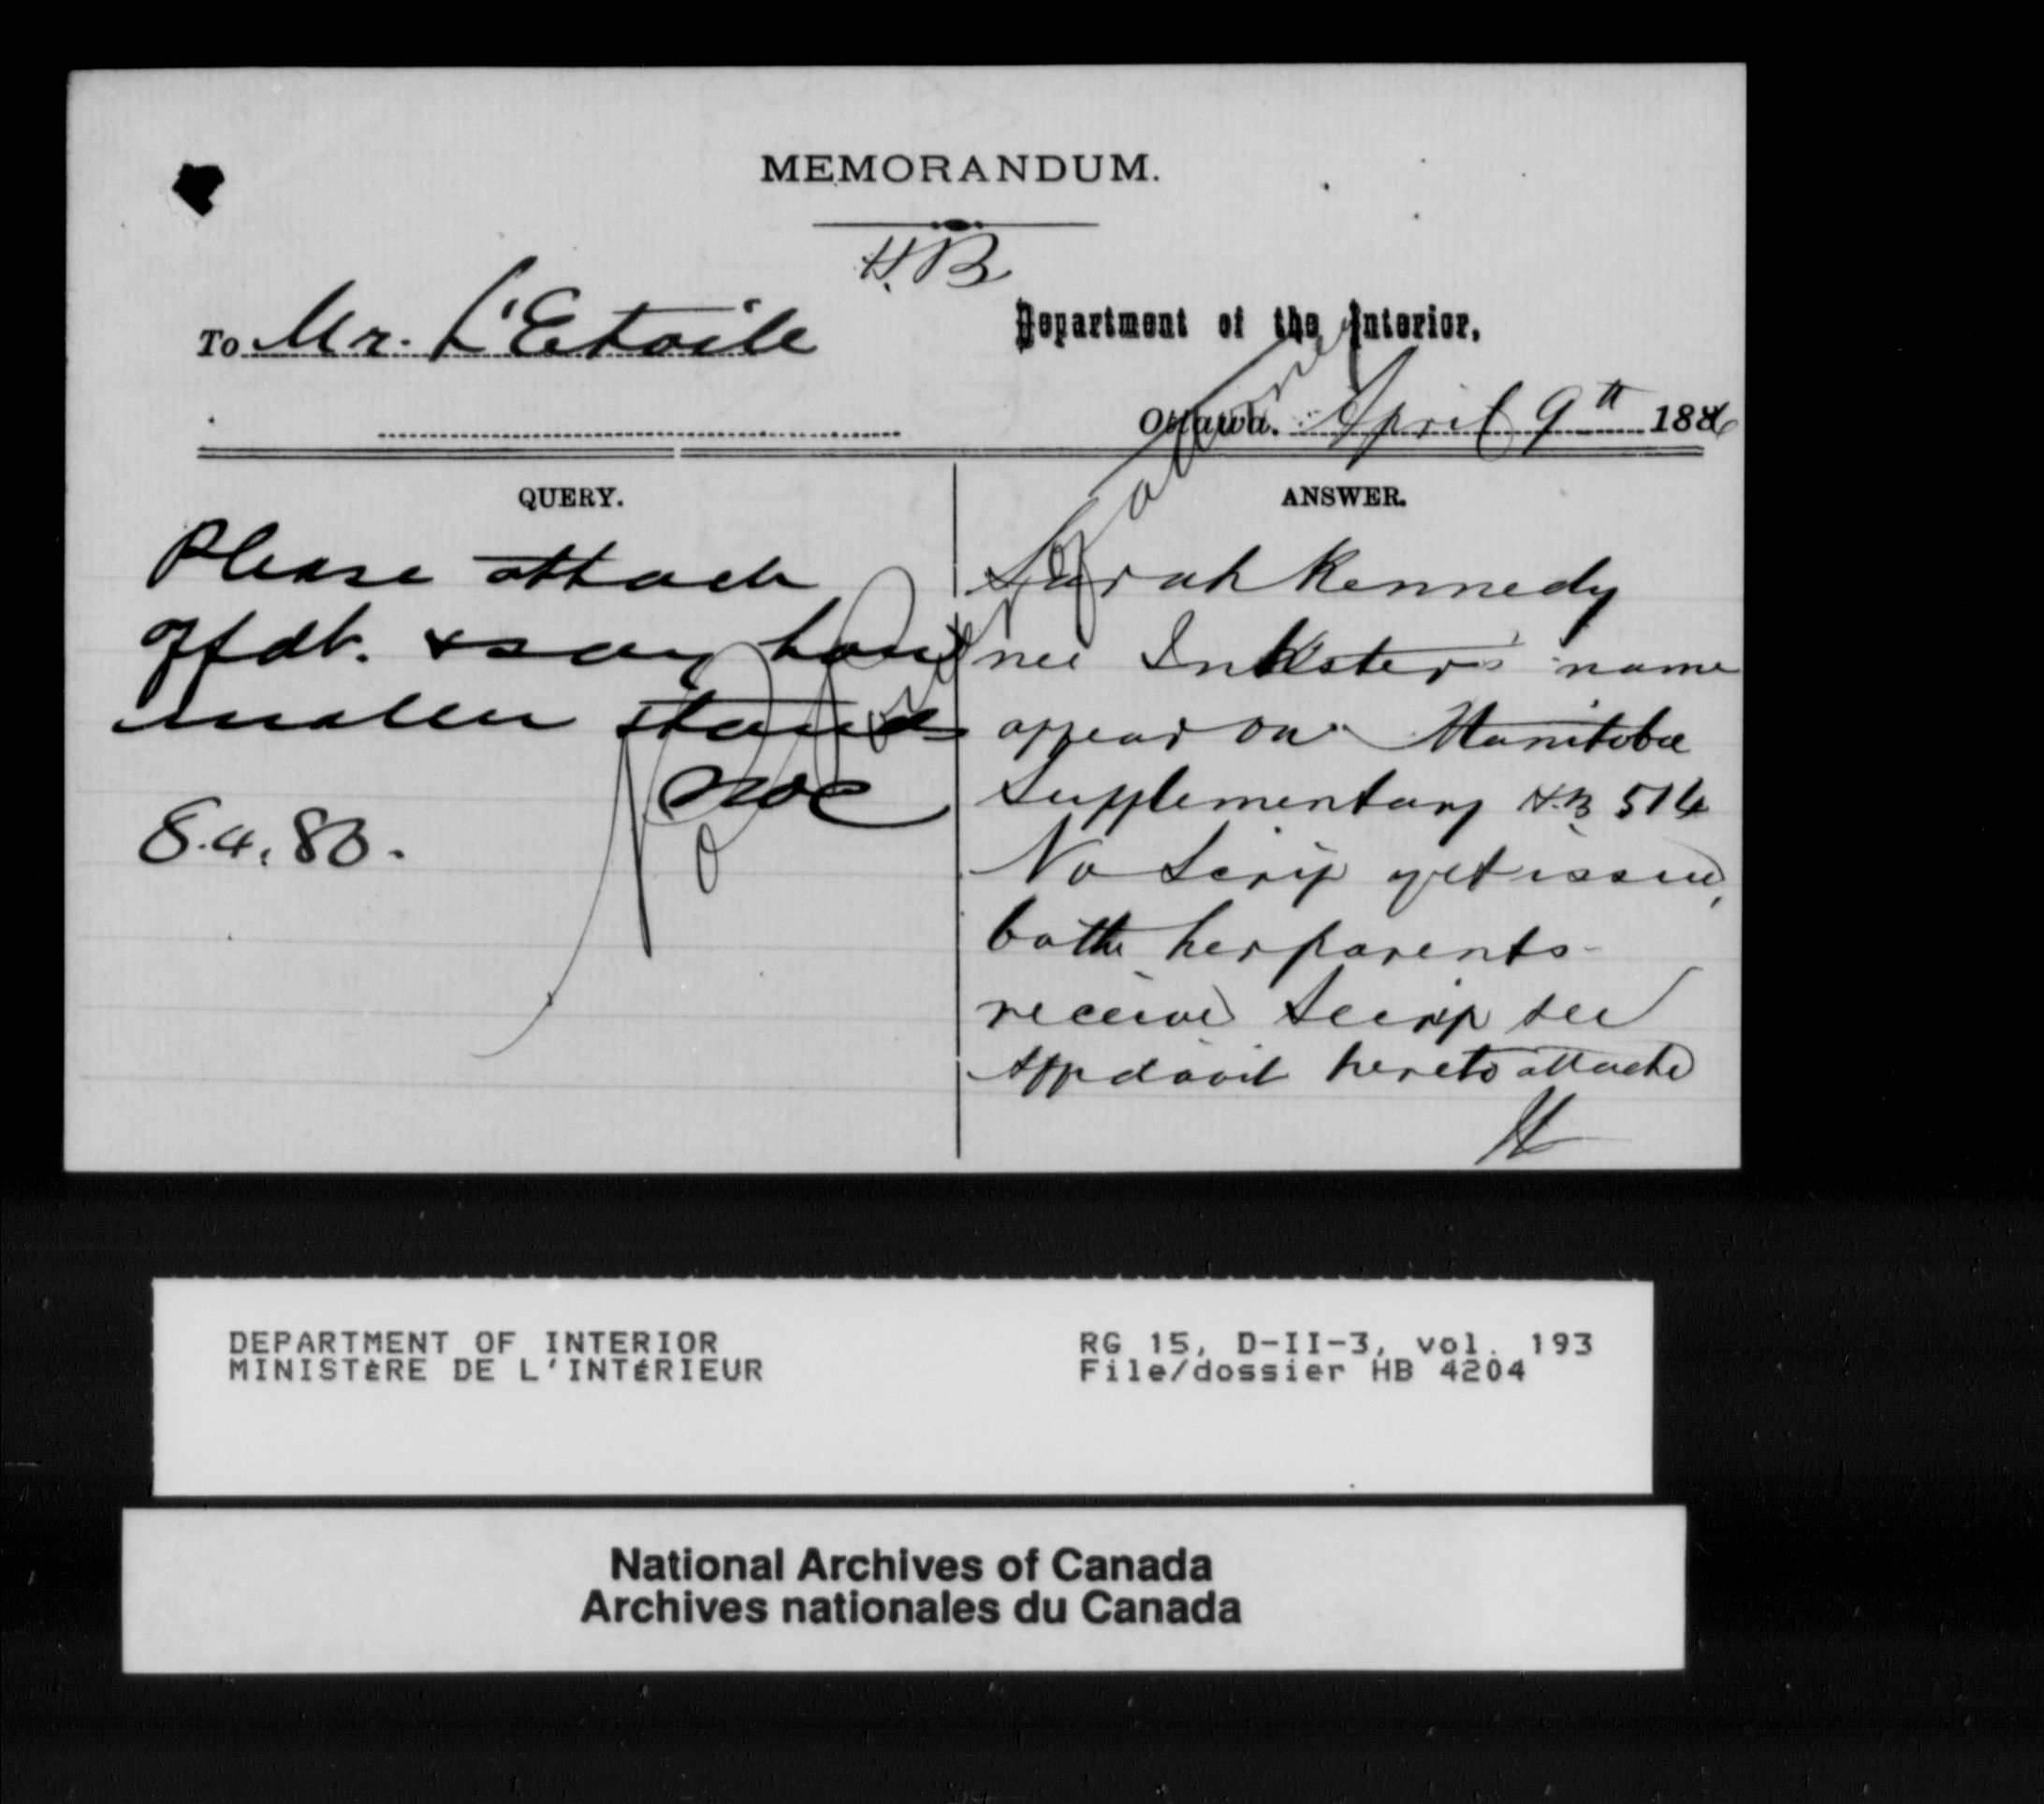 MEMORANDUM.
H.B
To Mr. L'Etoile
Department of the Interior,
Ottawa. April 9th 1886
QUERY.
Please attach
affdt. & say how
matter stands
8.4.86.
ANSWER.
Sarah Kennedy
nee Inkster's name
appear on Manitoba
Supplementary H.B 514
No Scrip yet issued,
both her parents
received Scrip see
Affidavit hereto attached
Power of attorney
DEPARTMENT OF INTERIOR
MINISTÈRE DE L'INTÉRIEUR
RG 15, D-II-3, vol. 193
File/dossier HB 4204
National Archives of Canada
Archives nationales du Canada